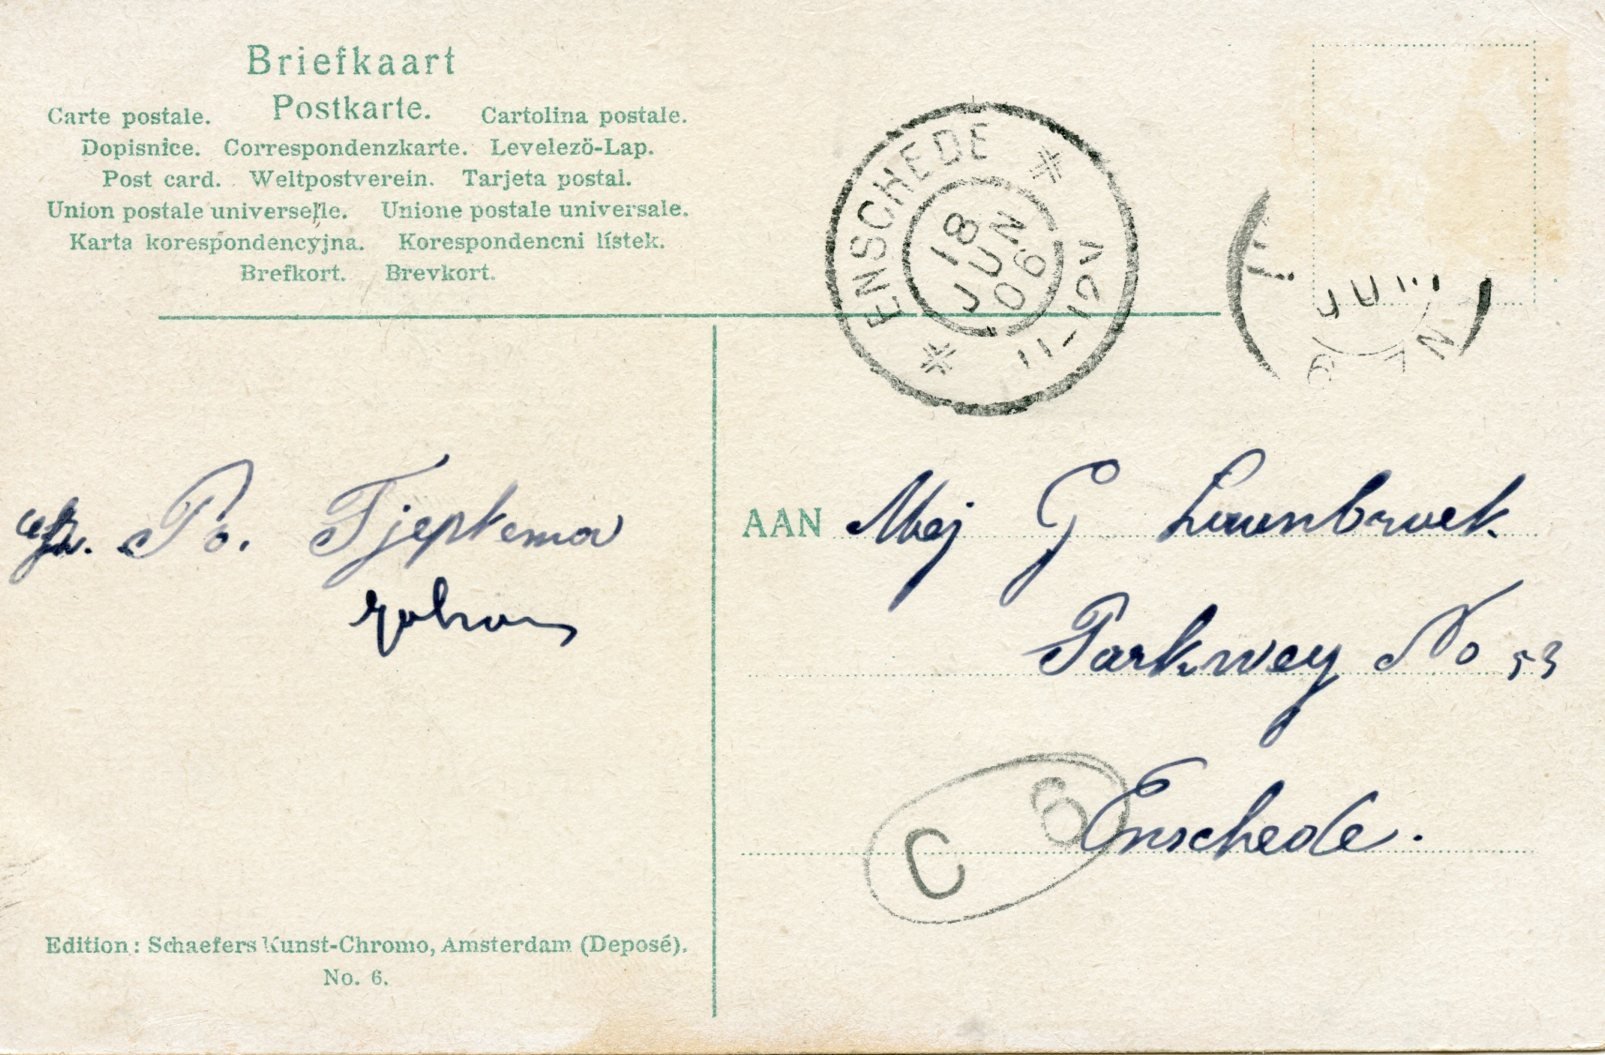 Briefkaart
Postkarte.
Carte postale. Cartolina postale.
Dopisnice. Correspondenzkarte. Levelező-Lap.
Post card. Weltpostverein. Tarjeta postal.
Union postale universelle. Unione postale universale.
Karta korespondencyjna. Korespondencni lístek.
Brefkort. Brevkort.
ENSCHEDE
18 JUN 06
11-12V
JUN
Tjeptema
AAN Mej G
Parkwey No 53
Enschede.
C 6
Edition: Schaefers Kunst-Chromo, Amsterdam (Deposé).
No. 6.